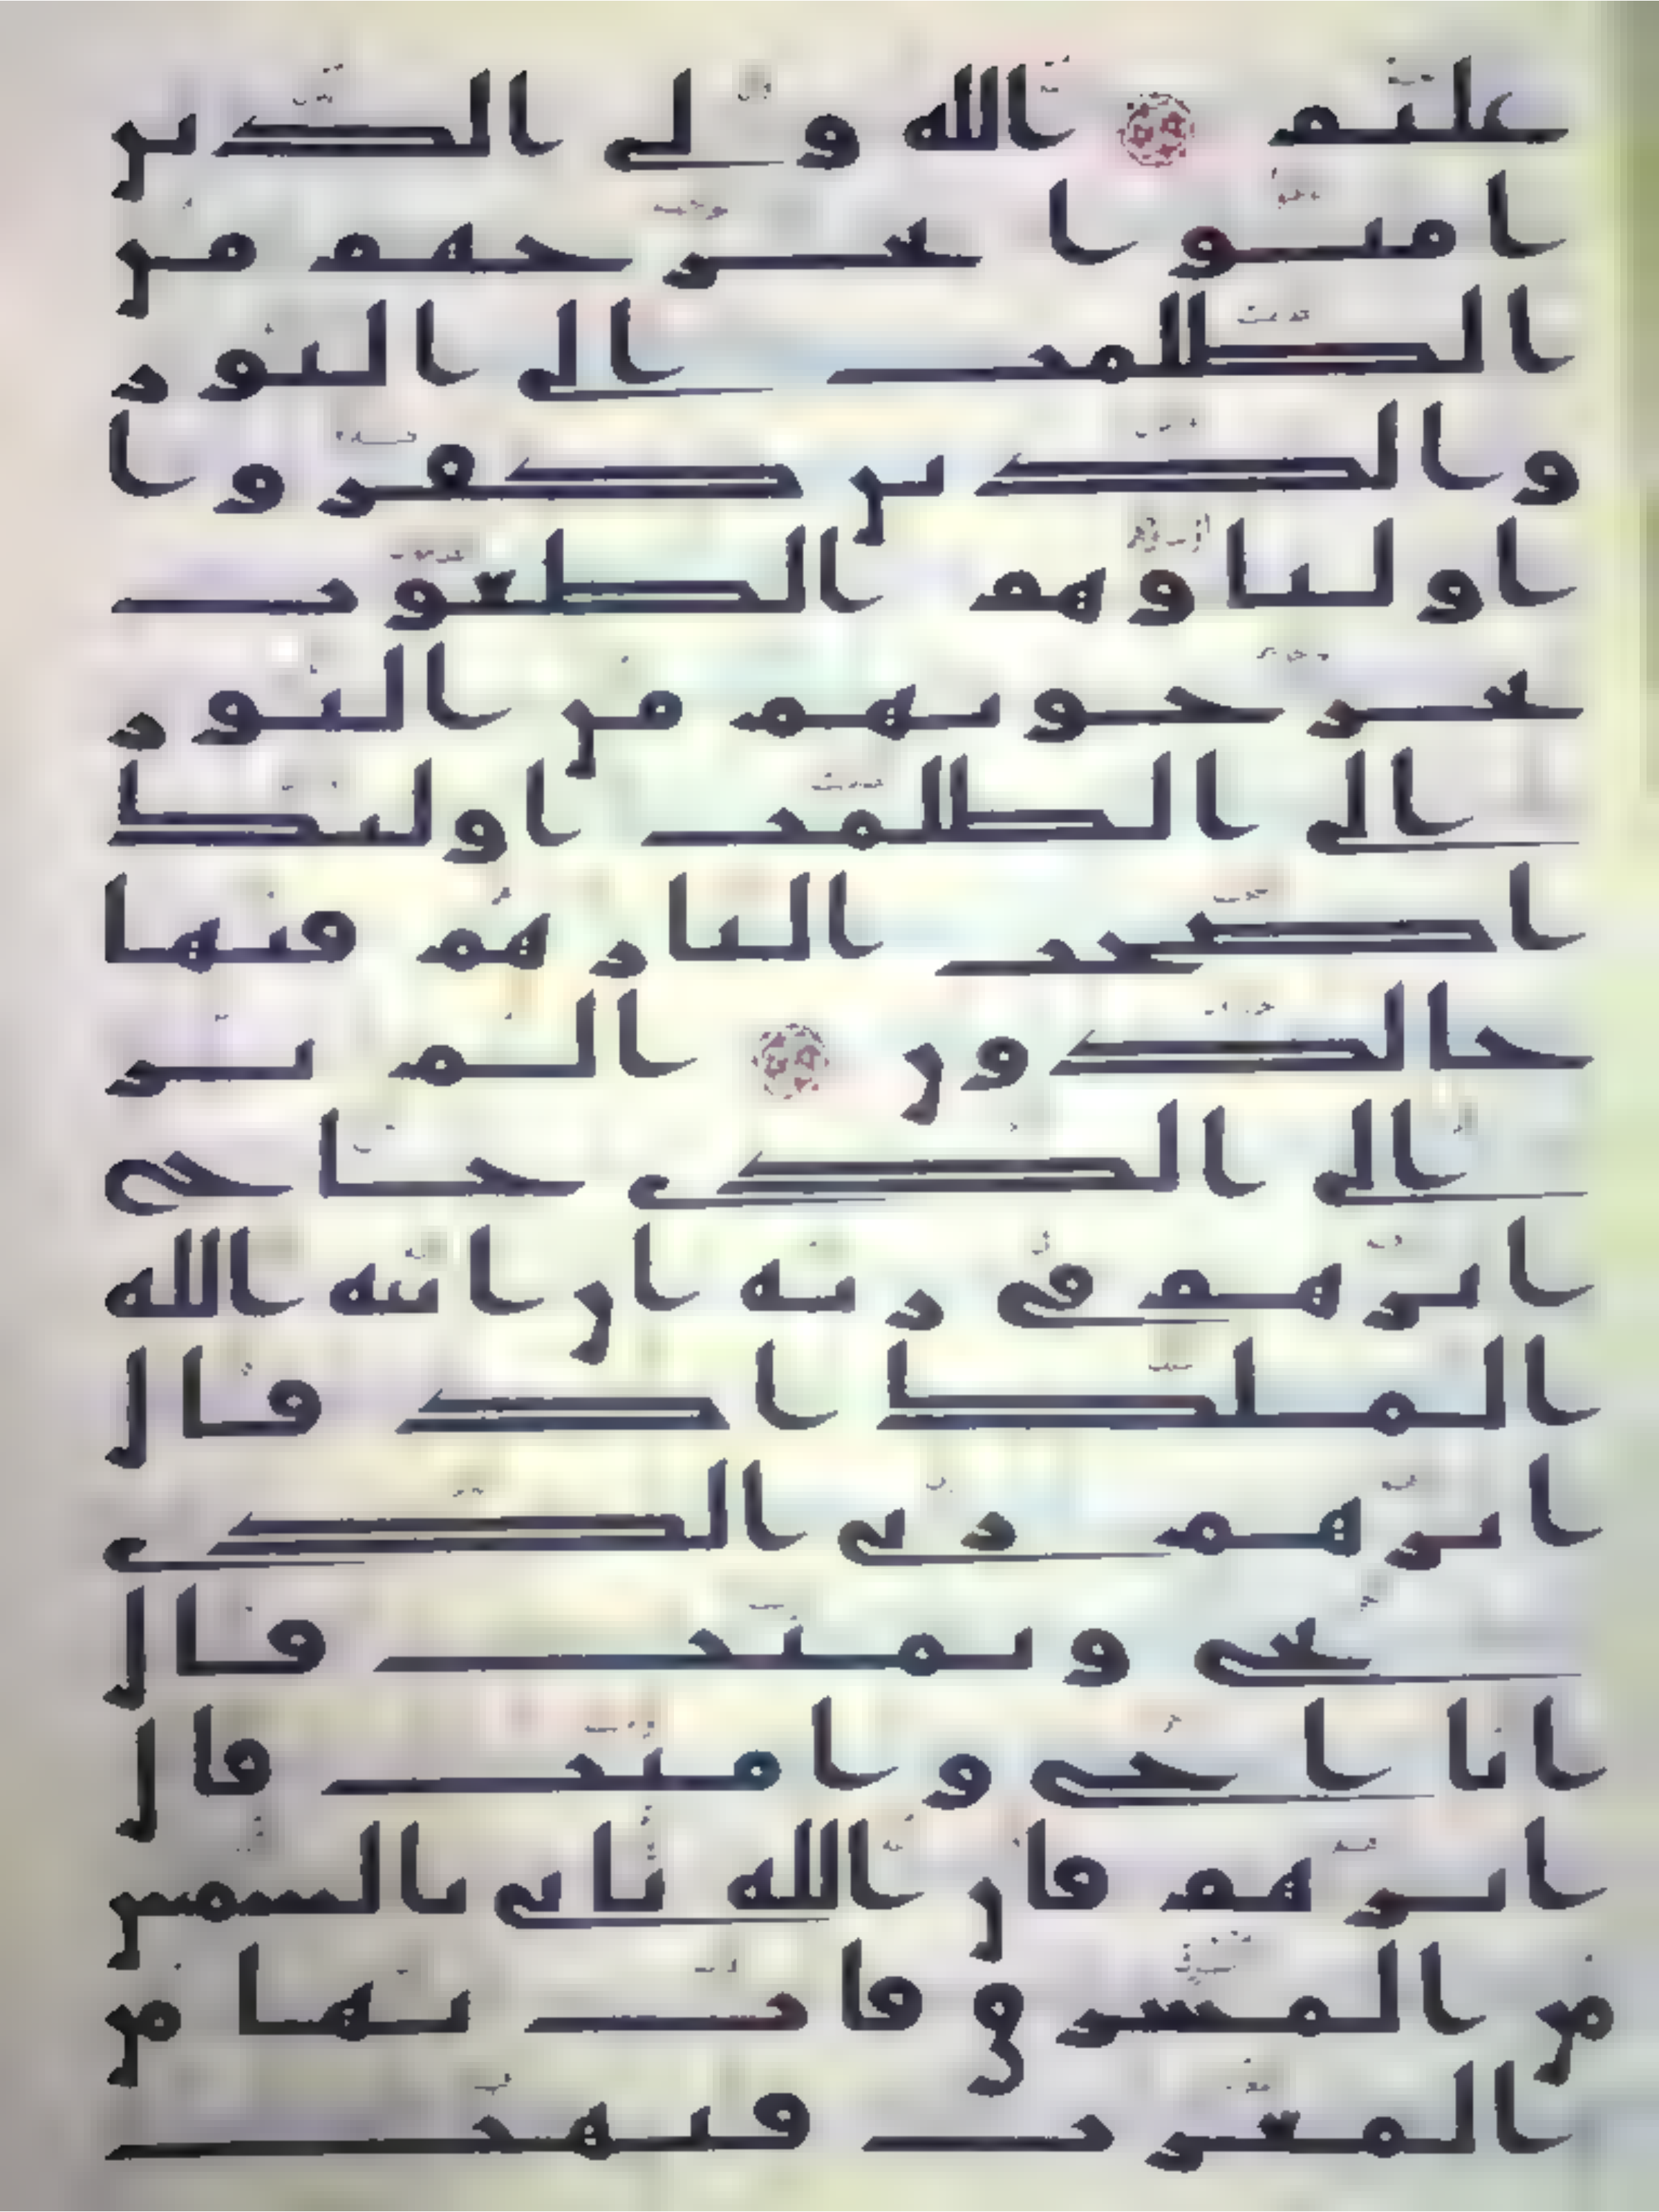 عليم الله ولي الذين
امنوا يخرجهم من
الظلمت الى النور
والذين كفروا
اولياوهم الطغوت
يخرجونهم من النور
الى الظلمت اولئك
اصحب النار هم فيها
خالدون الم تر
الى الذي حاج
ابرهم في ربه ان اتيه الله
الملك اذ قال
ابرهم ربي الذي
يحي ويميت قال
انا احي واميت قال
ابرهم فان الله ياتي بالشمس
من المشرق فات بها من
المغرب فبهت